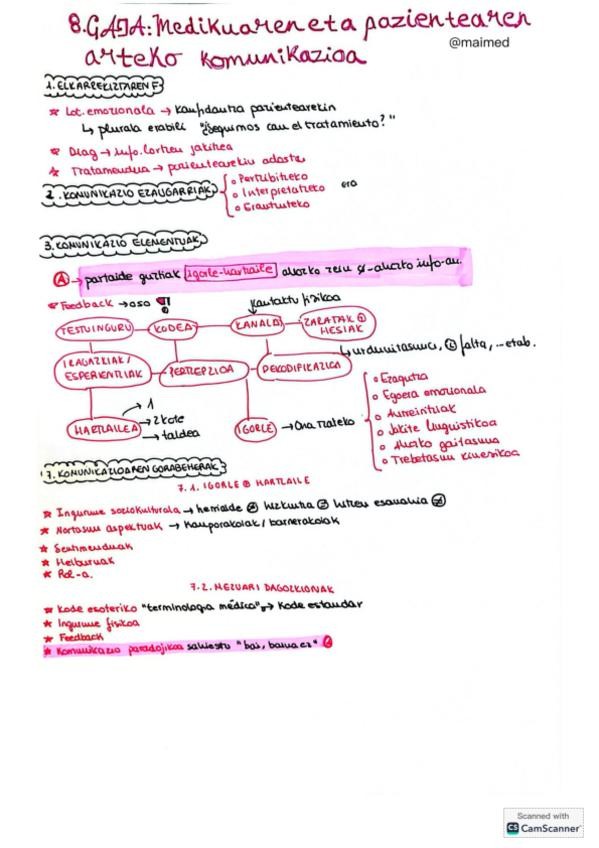 8.GAIA: Medikuaren eta pazientearen
arteko komunikazioa
@maimed
1. ELKARREKIZITAREN F
* Lot. emozionala → konfidantza pazientearekin
↳ plurala erabili "¿Seguimos con el tratamiento?"
* Diag → info. lortzen jakitea
* Tratamendua → pazientearekin adostu
2. KOMUNIKAZIO EZAUGARRIAK
o Pertzibitzeko era
o Interpretatzeko
o Erantzuteko
3. KOMUNIKAZIO ELEMENTUAK
→ partaide guztiak igorle-hartzaile
* Feedback → oso
Kontaktu fisikoa
TESTUINGURU
KODEA
KANALA
ZARATAK
MESIAK
↳ urduritasuna, falta, ... etab.
IRAGAZKIAK/
ESPERIENTZIAK
PERTZEPZIOA
DEKODIFIKAZIOA
HARTZAILEA
→ 1
→ 2kote
→ taldea
IGORLE → Ona izateko
o Ezagutza
o Egoera emozionala
o Aurreiritziak
o Jakite linguistikoa
o Ahozko gaitasuna
o Trebetasun kinesikoa
7. KOMUNIKAZIOAREN GORABEHERAK
7.1. IGORLE HARTZAILE
* Ingurune soziokulturala → herrialde hizkuntza hitzen esanahia
* Nortasun aspektuak → kanporakoiak/barnerakoiak
* Sentimenduak
* Helburuak
* Rol-a.
7.2. MEZUARI DAGOZKIONAK
* Kode esoteriko "terminologia médica" → Kode estandar
* Ingurune fisikoa
* Feedback
* Komunikazio paradojikoa saihestu "bai, baina ez"
Scanned with
CS CamScanner